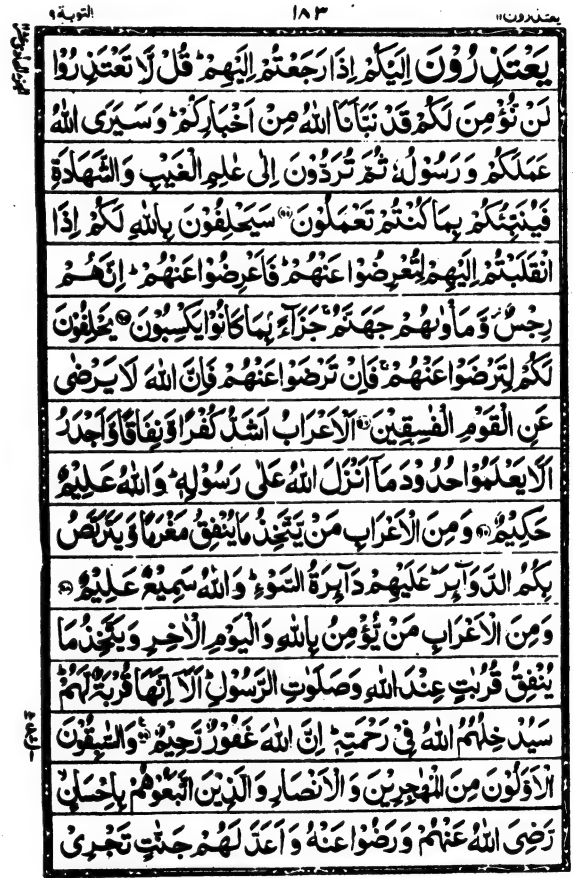 يعتذرون ١١ ١٨٣ التوبة ٩
يَعْتَذِرُوْنَ اِلَيْكُمْ اِذَا رَجَعْتُمْ اِلَيْهِمْ ؕ قُلْ لَّا تَعْتَذِرُوْا
لَنْ نُّؤْمِنَ لَكُمْ قَدْ نَبَّاَنَا اللّٰهُ مِنْ اَخْبَارِكُمْ ؕ وَسَيَرَى اللّٰهُ
عَمَلَكُمْ وَرَسُوْلُهٗ ثُمَّ تُرَدُّوْنَ اِلٰى عٰلِمِ الْغَيْبِ وَالشَّهَادَةِ
فَيُنَبِّئُكُمْ بِمَا كُنْتُمْ تَعْمَلُوْنَ سَيَحْلِفُوْنَ بِاللّٰهِ لَكُمْ اِذَا
انْقَلَبْتُمْ اِلَيْهِمْ لِتُعْرِضُوْا عَنْهُمْ ؕ فَاَعْرِضُوْا عَنْهُمْ ؕ اِنَّهُمْ
رِجْسٌ وَّمَاْوٰىهُمْ جَهَنَّمُ ۚ جَزَآءً بِمَا كَانُوْا يَكْسِبُوْنَ يَحْلِفُوْنَ
لَكُمْ لِتَرْضَوْا عَنْهُمْ ۚ فَاِنْ تَرْضَوْا عَنْهُمْ فَاِنَّ اللّٰهَ لَا يَرْضٰى
عَنِ الْقَوْمِ الْفٰسِقِيْنَ اَلْاَعْرَابُ اَشَدُّ كُفْرًا وَّنِفَاقًا وَّاَجْدَرُ
اَلَّا يَعْلَمُوْا حُدُوْدَ مَاۤ اَنْزَلَ اللّٰهُ عَلٰى رَسُوْلِهٖ ؕ وَاللّٰهُ عَلِيْمٌ
حَكِيْمٌ وَمِنَ الْاَعْرَابِ مَنْ يَّتَّخِذُ مَا يُنْفِقُ مَغْرَمًا وَّيَتَرَبَّصُ
بِكُمُ الدَّوَآئِرَ ؕ عَلَيْهِمْ دَآئِرَةُ السَّوْءِ ؕ وَاللّٰهُ سَمِيْعٌ عَلِيْمٌ
وَمِنَ الْاَعْرَابِ مَنْ يُّؤْمِنُ بِاللّٰهِ وَالْيَوْمِ الْاٰخِرِ وَيَتَّخِذُ مَا
يُنْفِقُ قُرُبٰتٍ عِنْدَ اللّٰهِ وَصَلَوٰتِ الرَّسُوْلِ ؕ اَلَاۤ اِنَّهَا قُرْبَةٌ لَّهُمْ ؕ
سَيُدْخِلُهُمُ اللّٰهُ فِيْ رَحْمَتِهٖ ؕ اِنَّ اللّٰهَ غَفُوْرٌ رَّحِيْمٌ وَالسّٰبِقُوْنَ
الْاَوَّلُوْنَ مِنَ الْمُهٰجِرِيْنَ وَالْاَنْصَارِ وَالَّذِيْنَ اتَّبَعُوْهُمْ بِاِحْسَانٍ ۙ
رَّضِيَ اللّٰهُ عَنْهُمْ وَرَضُوْا عَنْهُ وَاَعَدَّ لَهُمْ جَنّٰتٍ تَجْرِيْ